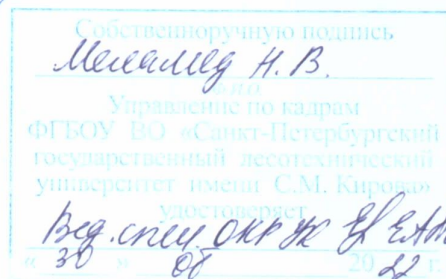 Собственноручную подпись
Меламед Н. В.
Ф.И.О.
Управление по кадрам
ФГБОУ ВО «Санкт-Петербургский
государственный лесотехнический
университет имени С.М. Кирова»
удостоверяет
Вед. спец
« 30 » 06 20 22 г.